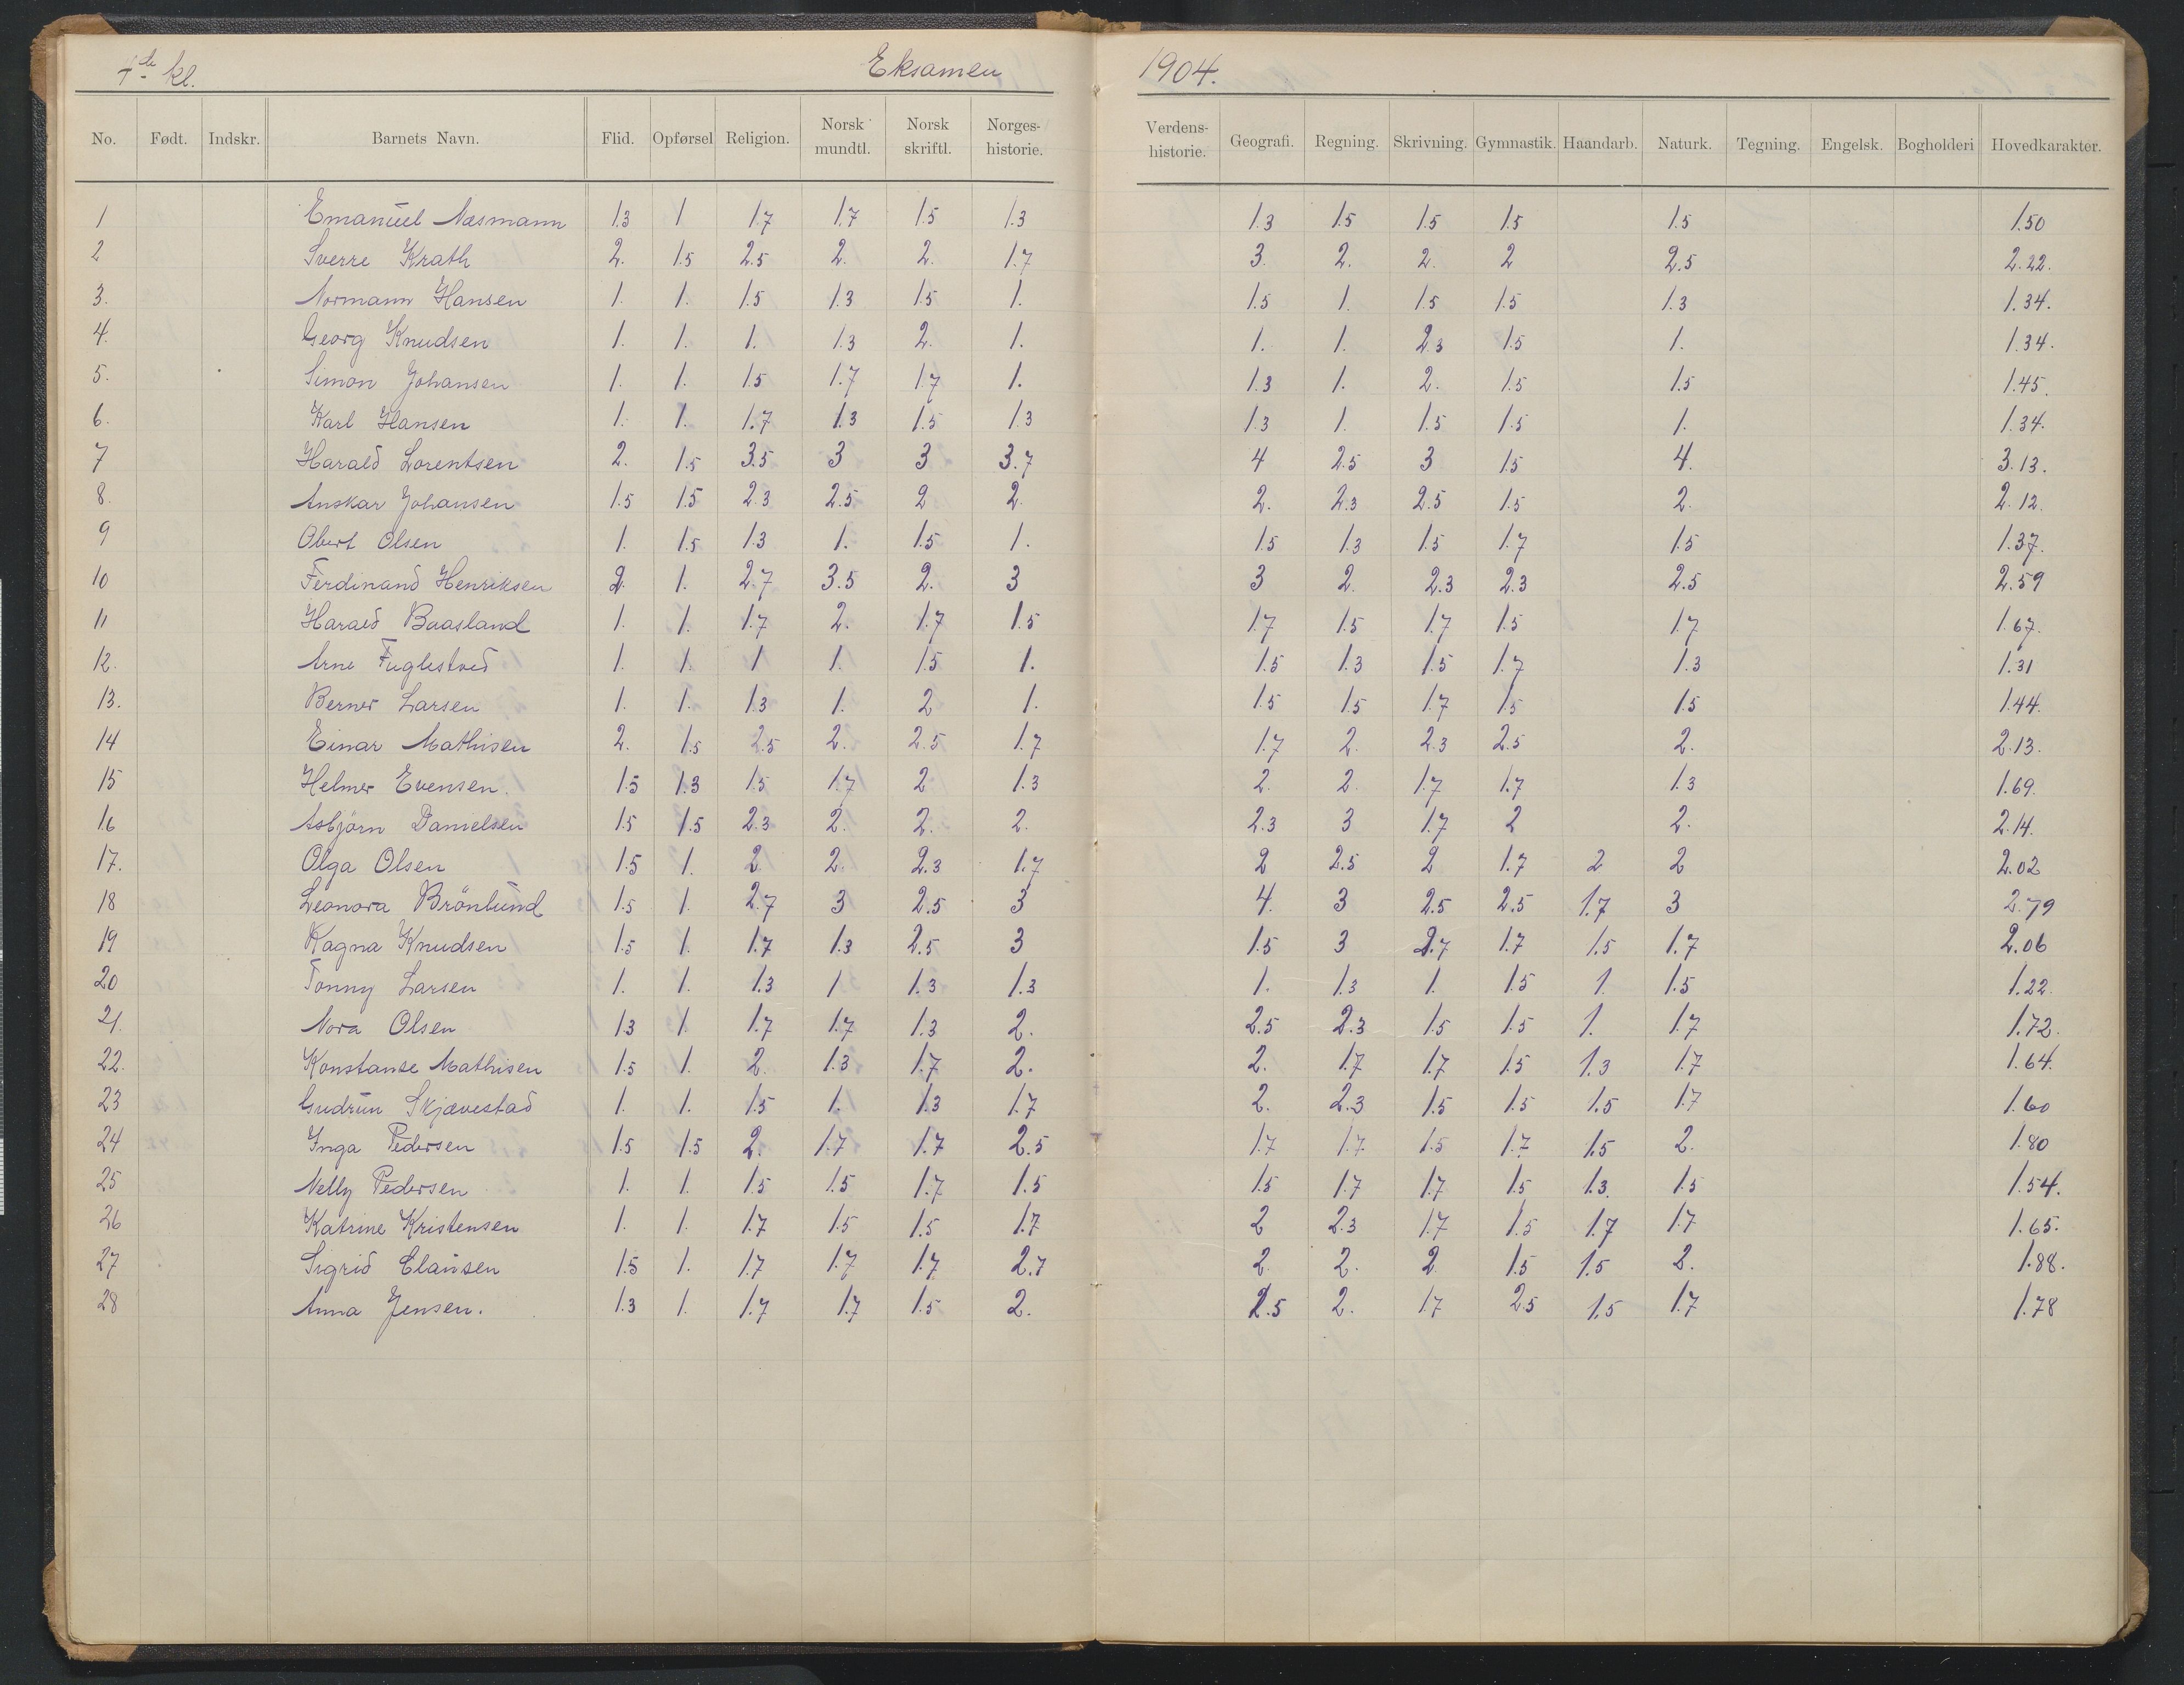 4de kl. Eksamen 1904.
No. Født. Indskr. Barnets Navn. Flid. Opførsel Religion. Norsk mundtl. Norsk skriftl. Norges-historie. Verdens-historie. Geografi. Regning. Skrivning. Gymnastik. Haandarb. Naturk. Tegning. Engelsk. Bogholderi Hovedkarakter.
1 Emanuel Næsmann 1.3 1 1.7 1.7 1.5 1.3 1.3 1.5 1.5 1.5 1.5 1.50
2 Sverre Krath 2. 1.5 2.5 2. 2. 1.7 3. 2. 2. 2 2.5 2.22.
3. Normann Hansen 1. 1. 1.5 1.3 1.5 1. 1.5 1. 1.5 1.5 1.3 1.34.
4. Georg Knudsen 1. 1. 1. 1.3 2. 1. 1. 1. 2.3 1.5 1. 1.34.
5. Simon Johansen 1. 1. 1.5 1.7 1.7 1. 1.3 1. 2. 1.5 1.5 1.45.
6. Karl Hansen 1. 1. 1.7 1.3 1.5 1.3 1.3 1. 1.5 1.5 1. 1.34.
7 Harald Lorentsen 2. 1.5 3.5 3 3 3.7 4 2.5 3 1.5 4. 3.13.
8. Anskar Johansen 1.5 1.5 2.3 2.5 2 2. 2. 2.3 2.5 1.5 2. 2.12.
9 Obert Olsen 1. 1.5 1.3 1. 1.5 1. 1.5 1.3 1.5 1.7 1.5 1.37.
10 Ferdinand Henriksen 2. 1. 2.7 3.5 2. 3 3 2. 2.3 2.3 2.5 2.59
11 Harald Baasland 1. 1. 1.7 2. 1.7 1.5 1.7 1.5 1.7 1.5 1.7 1.67.
12. Arne Fuglestved 1. 1. 1 1. 1.5 1. 1.5 1.3 1.5 1.7 1.3 1.31
13. Berner Larsen 1. 1. 1.3 1. 2 1. 1.5 1.5 1.7 1.5 1.5 1.44.
14 Einar Mathisen 2. 1.5 2.5 2. 2.5 1.7 1.7 2. 2.3 2.5 2. 2.13.
15 Helmer Evensen. 1.5 1.3 1.5 1.7 2 1.3 2. 2. 1.7 1.7 1.3 1.69.
16 Asbjörn Danielsen 1.5 1.5 2.3 2. 2. 2. 2.3 3 1.7 2 2. 2.14.
17. Olga Olsen 1.5 1. 2. 2. 2.3 1.7 2 2.5 2 1.7 2 2 2.02
18 Leonora Brönlund 1.5 1. 2.7 3 2.5 3 4. 3 2.5 2.5 1.7 3 2.79
19 Ragna Knudsen 1.5 1. 1.7 1.3 2.5 3 1.5 3 2.7 1.7 1.5 1.7 2.06
20 Tonny Larsen 1. 1. 1.3 1 1.3 1.3 1. 1.3 1. 1.5 1. 1.5 1.22.
21. Nora Olsen 1.3 1 1.7 1.7 1.3 2. 2.5 2.3 1.5 1.5 1. 1.7 1.72.
22. Konstanse Mathisen 1.5 1. 2. 1.3 1.7 2. 2. 1.7 1.7 1.5 1.3 1.7 1.64.
23 Gudrun Skjævestad 1. 1. 1.5 1. 1.3 1.7 2. 2.3 1.5 1.5 1.5 1.7 1.60
24 Inga Pedersen 1.5 1.5 2. 1.7 1.7 2.5 1.7 1.7 1.5 1.7 1.5 2. 1.80
25 Nelly Pedersen 1. 1. 1.5 1.5 1.7 1.5 1.5 1.7 1.7 1.5 1.3. 1.5 1.54.
26 Katrine Kristensen 1. 1. 1.7 1.5 1.5 1.7 2 2.3 1.7 1.5 1.7 1.7 1.65.
27 Sigrid Clausen 1.5 1. 1.7 1.7 1.7 2.7 2. 2. 2 1.5 1.5 2. 1.88.
28 Anna Jensen. 1.3 1. 1.7 1.7 1.5 2. 2.5 2. 1.7 2.5 1.5 1.7 1.78